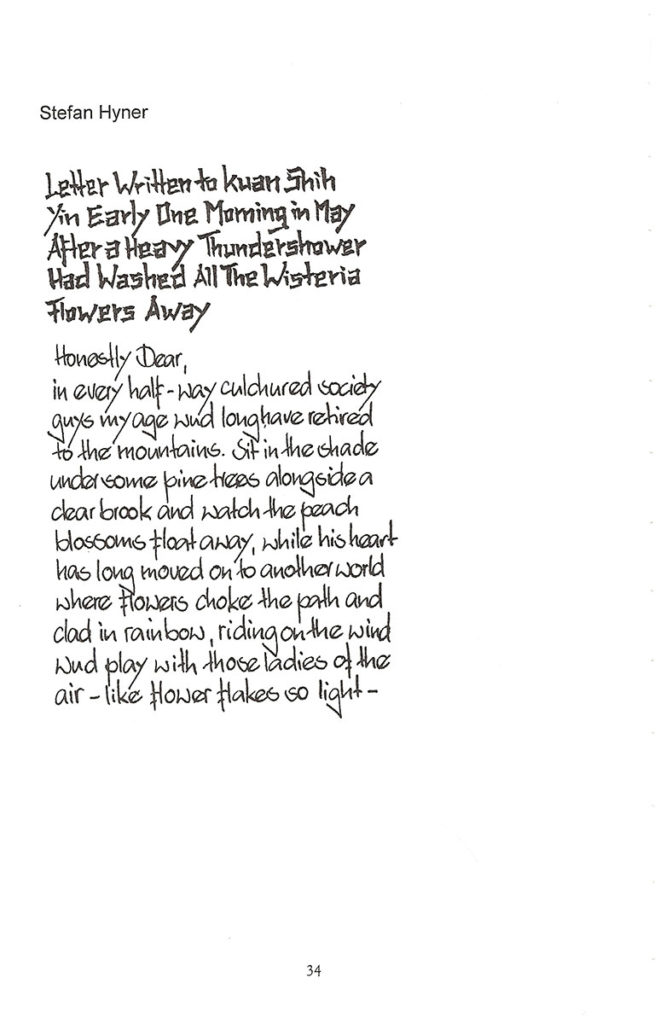 Stefan Hyner
Letter Written to Kuan Shih
Yin Early One Morning in May
After a Heavy Thundershower
Had Washed All The Wisteria
Flowers Away
Honestly Dear,
in every half-way culchured society
guys my age wud long have retired
to the mountains. Sit in the shade
under some pine trees alongside a
clear brook and watch the peach
blossoms float away, while his heart
has long moved on to another world
where flowers choke the path and
clad in rainbow, riding on the wind
wud play with those ladies of the
air – like flower flakes so light –
34